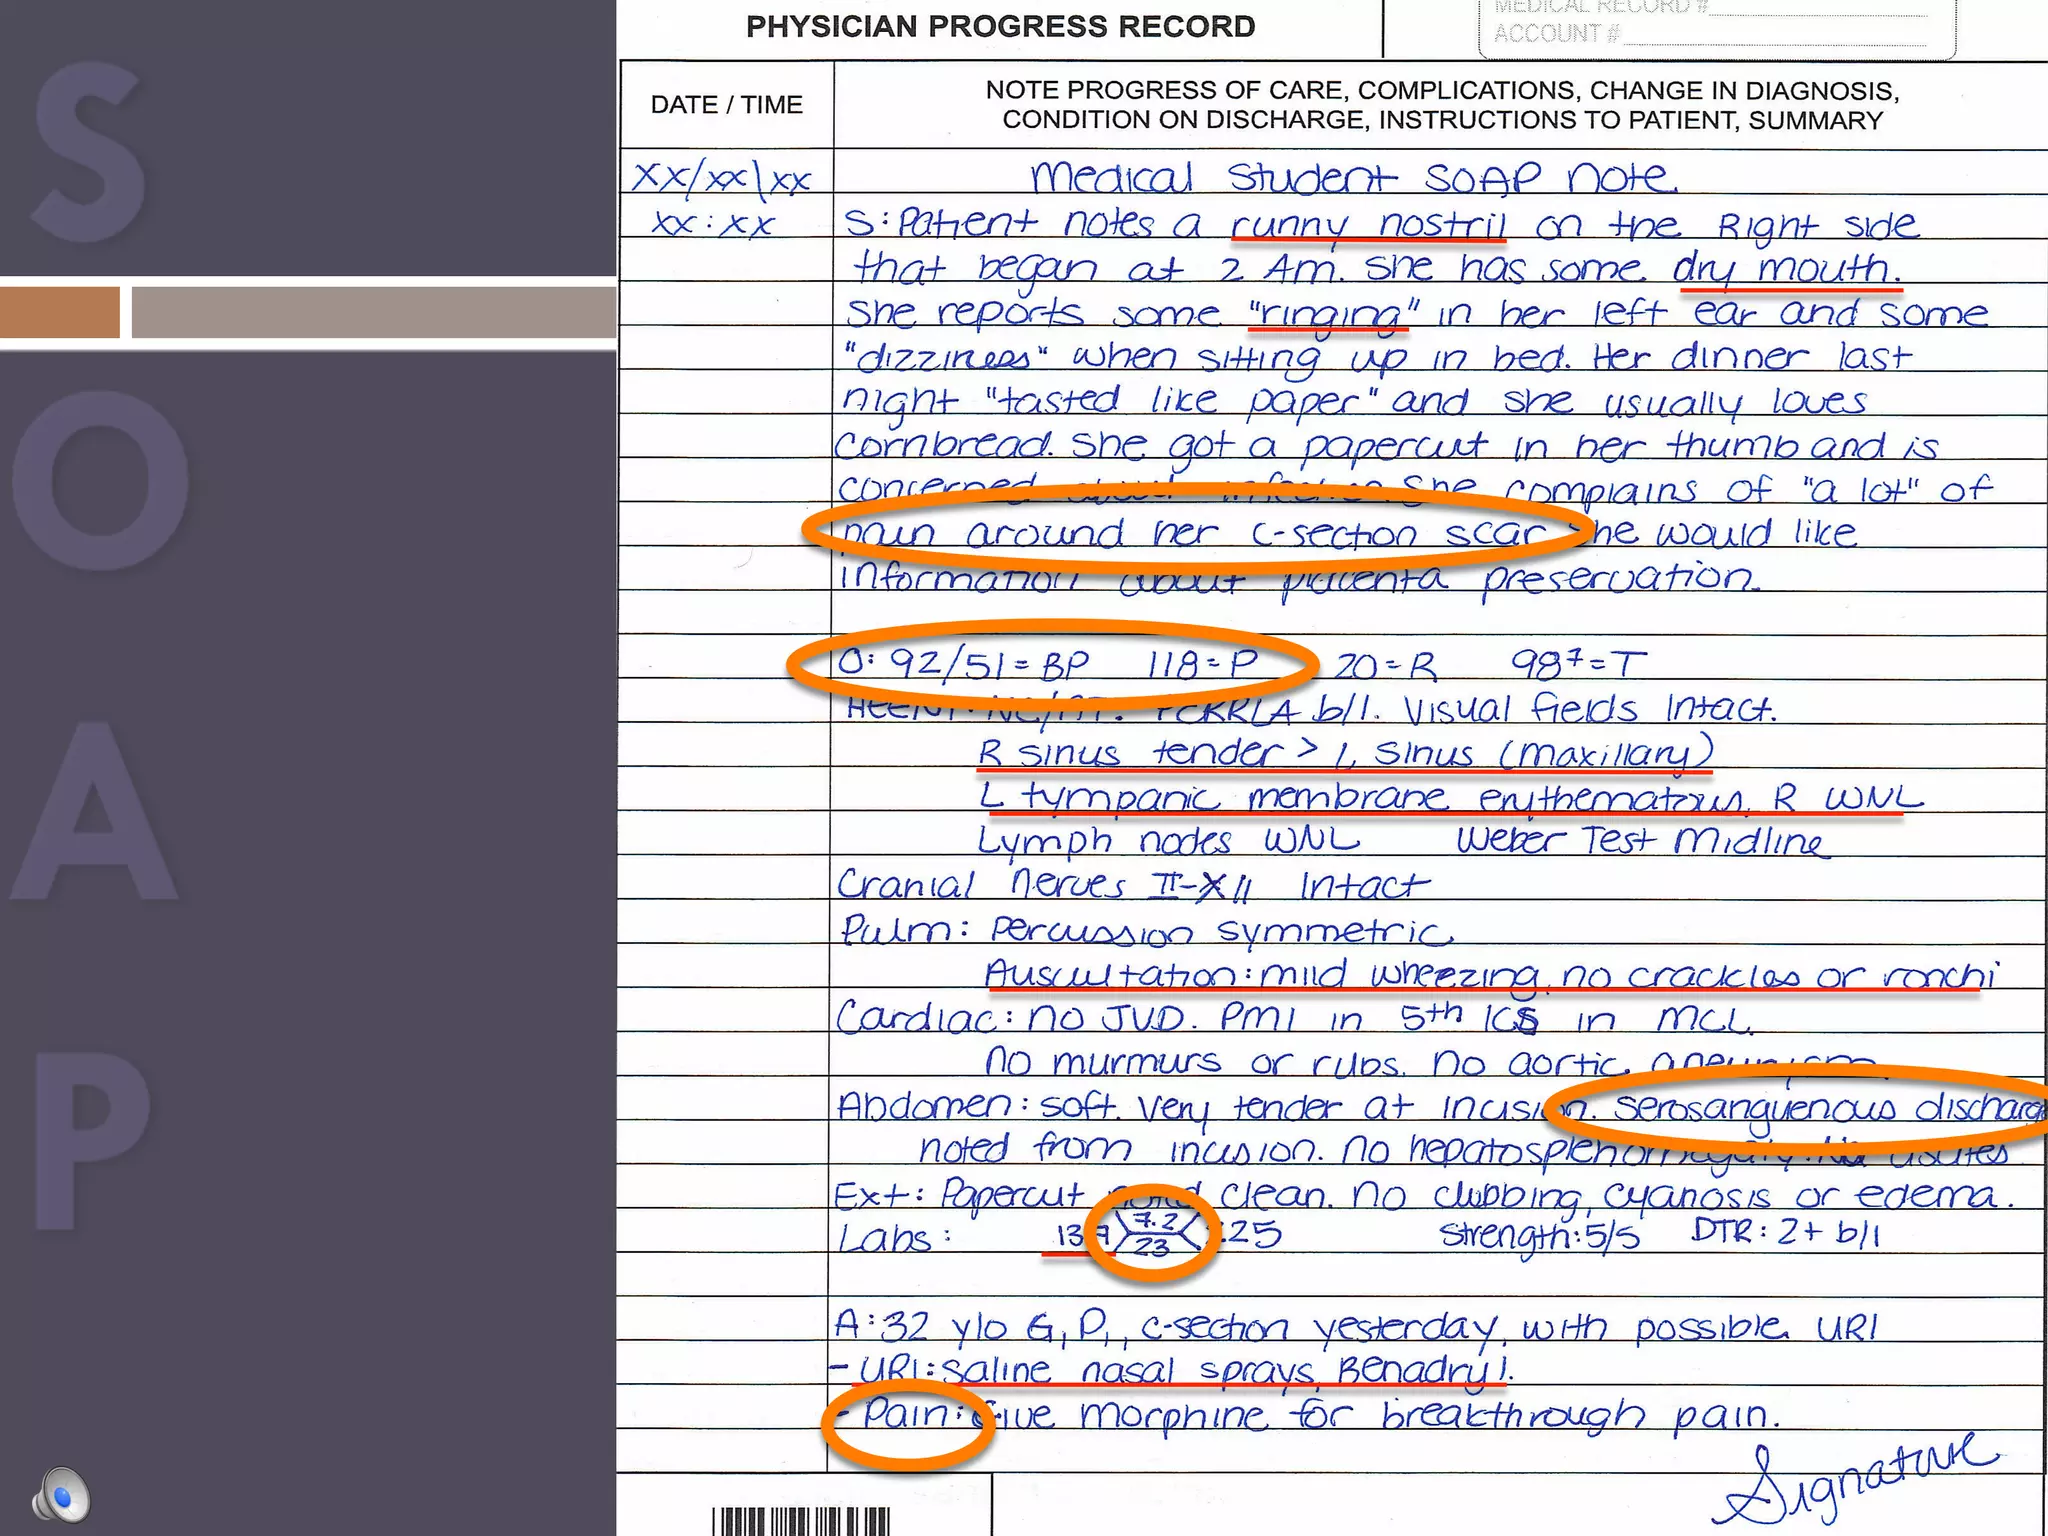 S
O
A
P
PHYSICIAN PROGRESS RECORD
MEDICAL RECORD #
ACCOUNT #
DATE / TIME
NOTE PROGRESS OF CARE, COMPLICATIONS, CHANGE IN DIAGNOSIS,
CONDITION ON DISCHARGE, INSTRUCTIONS TO PATIENT, SUMMARY
xx/xx\xx Medical Student SOAP note
xx:xx S: Patient notes a runny nostril on the Right side
that began at 2 Am. She has some dry mouth.
She reports some "ringing" in her left ear and some
"dizziness" when sitting up in bed. Her dinner last
night "tasted like paper" and she usually loves
cornbread. She got a papercut in her thumb and is
concerned about infection. She complains of "a lot" of
pain around her C-section scar. She would like
information about placenta preservation.
O: 92/51=BP 118=P 20=R 98⁷=T
HEENT: NC/AT. PERRLA b/l. Visual fields intact.
R sinus tender > L sinus (maxillary)
L tympanic membrane erythematous, R WNL
Lymph nodes WNL Weber Test Midline
Cranial nerves II-XII intact
Pulm: percussion symmetric
Auscultation: mild wheezing, no crackles or ronchi
Cardiac: no JVD. PMI in 5th ICS in MCL.
no murmurs or rubs. no aortic aneurysm.
Abdomen: soft. Very tender at incision. serosanguenous discharge
noted from incision. no hepatosplenomegaly. No ascites
Ext: Papercut noted clean. no clubbing, cyanosis or edema.
Labs: 7.2 23 Strength: 5/5 DTR: 2+ b/l
A: 32 y/o G₁P₁, c-section yesterday, with possible URI
- URI: saline nasal sprays, Benadryl.
- Pain: Give morphine for breakthrough pain.
Signature